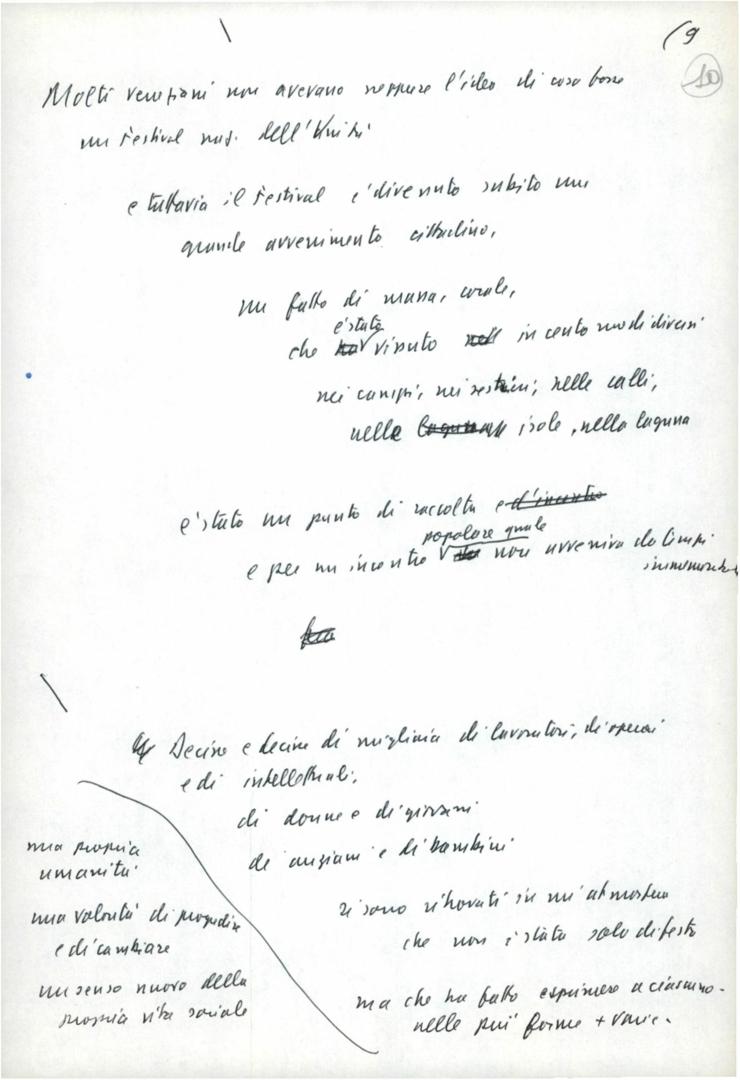 (9
10
Molti veneziani non avevano neppure l'idea di cosa fosse
un Festival naz. dell'Unità
e tuttavia il Festival è divenuto subito un
grande avvenimento cittadino,
un fatto di massa, corale,
è stato
che ha vissuto nell in cento modi diversi
nei campi, nei sestieri, nelle calli,
nelle laguna isole, nella laguna
è stato un punto di raccolta e d'incontro
popolare quale
e per un incontro non avveniva da tempi
immemorabili
Decine e decine di migliaia di lavoratori, di operai
e di intellettuali,
di donne e di giovani
di anziani e di bambini
si sono ritrovati in un'atmosfera
che non è stata solo di festa
ma che ha fatto esprimere a ciascuno
nelle più forme + varie.
una propria
umanità
una volontà di progredire
e di cambiare
un senso nuovo della
propria vita sociale